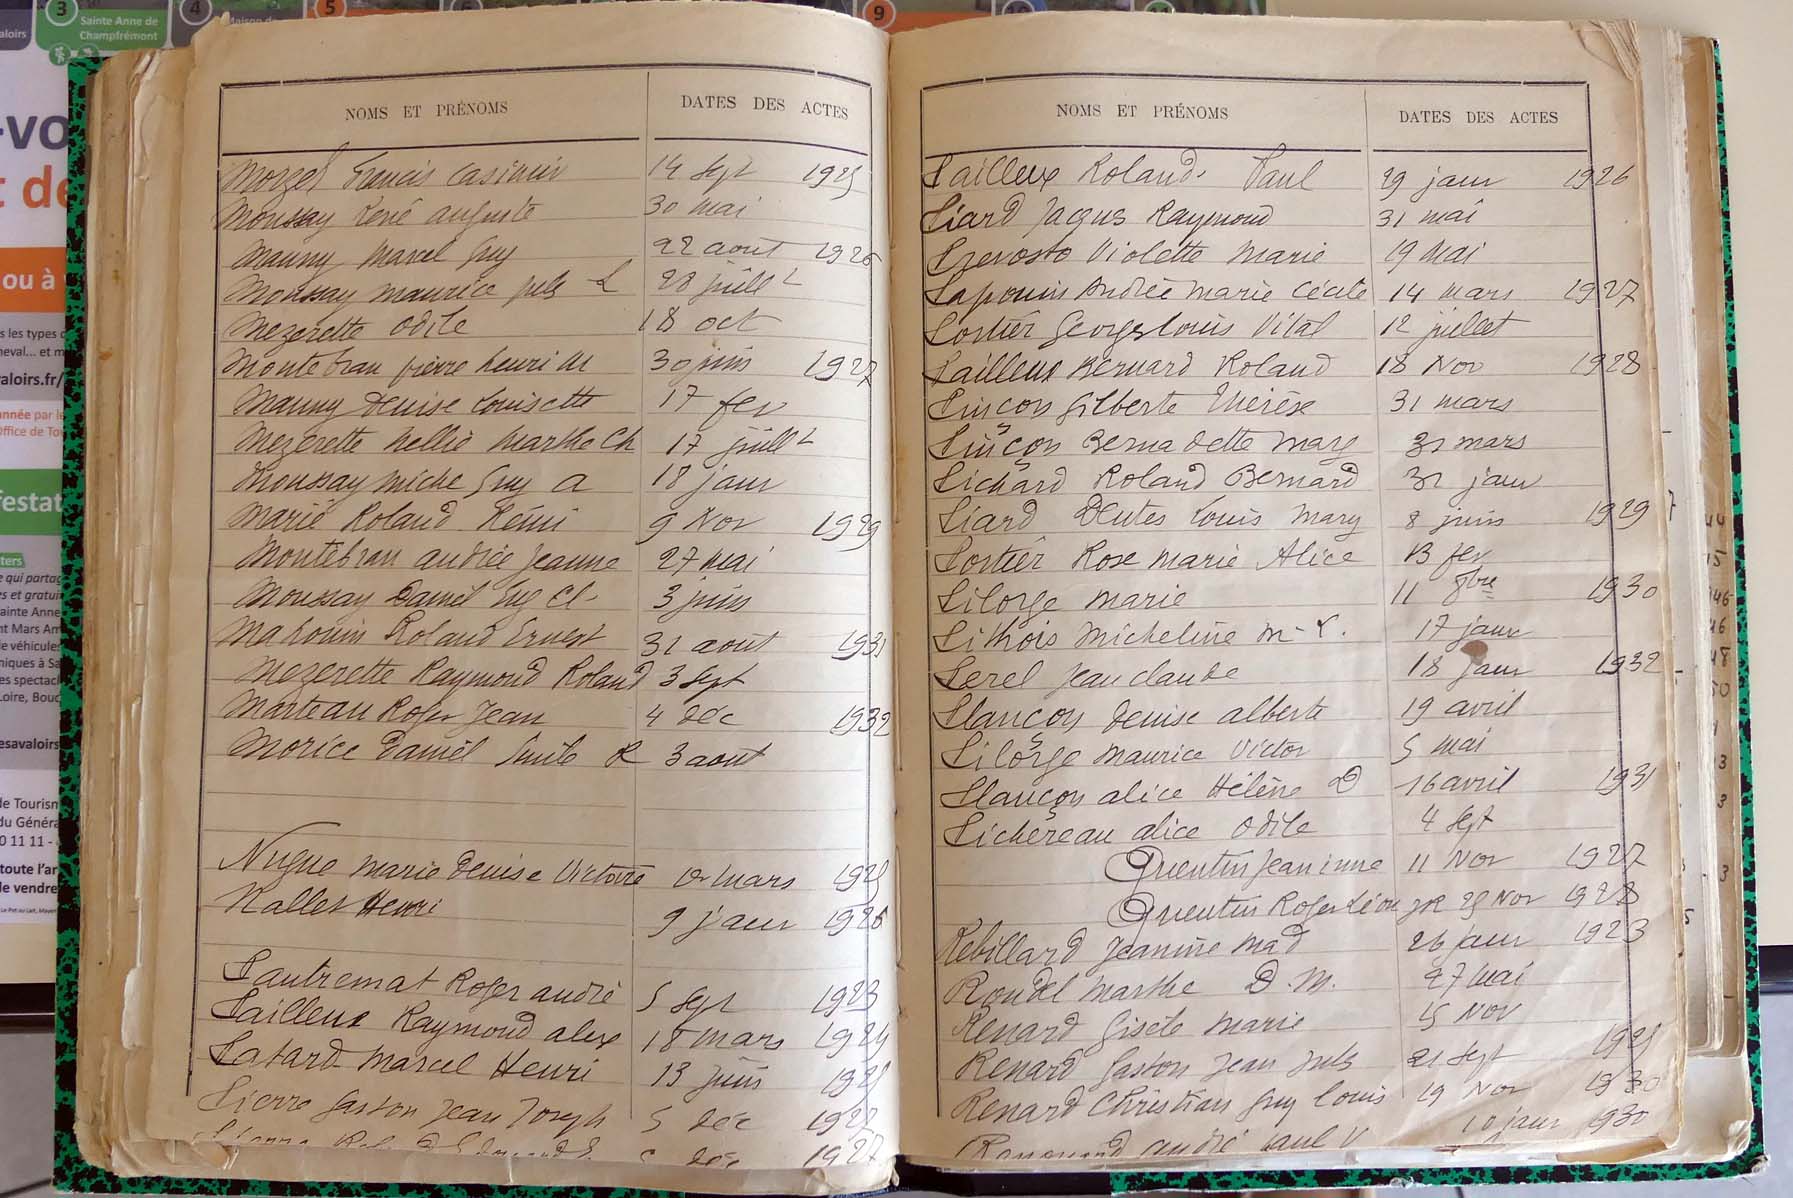 3
Sainte Anne de
Champfrémont
4
5
9
-vo
t de
ou à
aloirs.fr/
Office de To
festat
esavaloirs
de Tourism
du Généra
0 11 11 -
toute l'ar
le vendre
NOMS ET PRÉNOMS DATES DES ACTES
Morzel Francis Casimir 14 Sept 1925
Moussay René auguste 30 mai
Mauny Marcel Guy 22 aout 1926
Moussay maurice L 28 juillt
Mezerette Odile 18 oct
Montebran pierre henri M 30 juin 1927
Mauny Denise Louisette 17 fev
Mezerette Nellie Marthe Ch 17 juillt
Moussay Miche Guy a 18 janv
Marie Roland Rémi 9 Nov 1929
Montebran andrée Jeanne 27 mai
Moussay Daniel Guy Cl- 3 juin
Mahouin Roland Ernest 31 aout 1931
Mezerette Raymond Roland 3 Sept
Marteau Roger Jean 4 déc 1932
Morice Daniel Emile R 3 aout
Nugue Marie Denise Victoire mars 192
Nalles Henri 9 janv 1926
Pautremat Roger andré 5 Sept 1923
Pailleux Raymond alex 18 mars 192
Patard Marcel Henri 13 juin 192
Pierre Gaston Jean Joseph 5 déc 1927
déc 1927
NOMS ET PRÉNOMS DATES DES ACTES
Pailleux Roland Paul 29 janv 1926
Piard Jaques Raymond 31 mai
Violette Marie 19 Mai
Andrée Marie Cécile 14 mars 1927
Portier Georges Louis Vital 12 juillet
Pailleux Bernard Roland 18 Nov 1928
Pinçon Gilberte Thérèse 31 mars
Pinçon Bernadette Mary 31 mars
Pichard Roland Bernard 31 janv
Piard Louis Mary 8 juin 1929
Portier Rose Marie Alice 13 fev
Pilorge Marie 11 8bre 1930
Pithois Micheline M- Y. 17 janv
Perel Jean claude 18 janv 1932
Plançon Denise alberte 19 avril
Pilorge Maurice Victor 5 mai
Plançon alice Hélène D 16 avril 1931
Pichereau alice Odile 4 Sept
Quentin Jeaninne 11 Nov 1927
Quentin Roger Léon 29 Nov 1928
Rebillard Jeanine Mad 26 janv 1923
Rondel Marthe D. M. 27 mai
Renard Gisèle Marie 15 Nov
Renard Gaston Jean Jules 21 Sept 192
Renard Christian Guy Louis 19 Nov 1930
andré Paul V 10 janv 1930